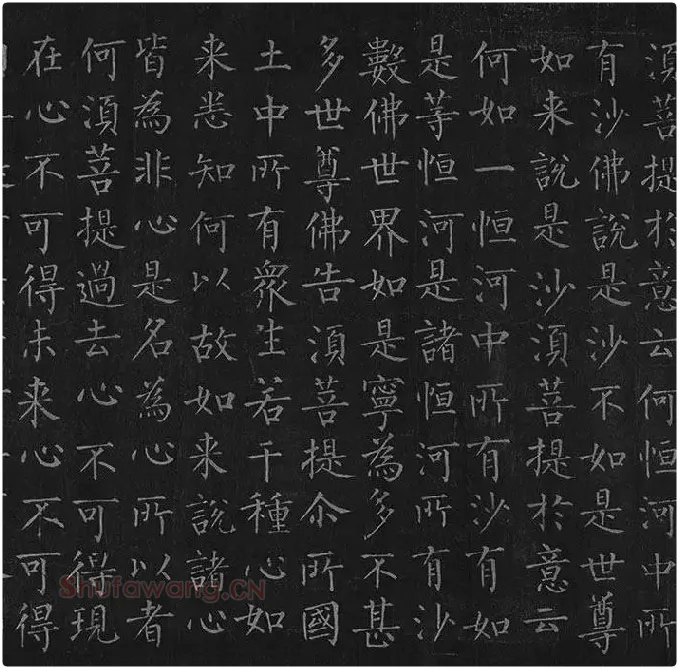 湏菩提於意云何恒河中所
有沙佛說是沙不如是世尊
如来說是沙湏菩提於意云
何如一恒河中所有沙有如
是等恒河是諸恒河所有沙
數佛世界如是寧為多不甚
多世尊佛告湏菩提尒所國
土中所有衆生若干種心如
来悉知何以故如来說諸心
皆為非心是名為心所以者
何湏菩提過去心不可得現
在心不可得未来心不可得
Shufawang.CN